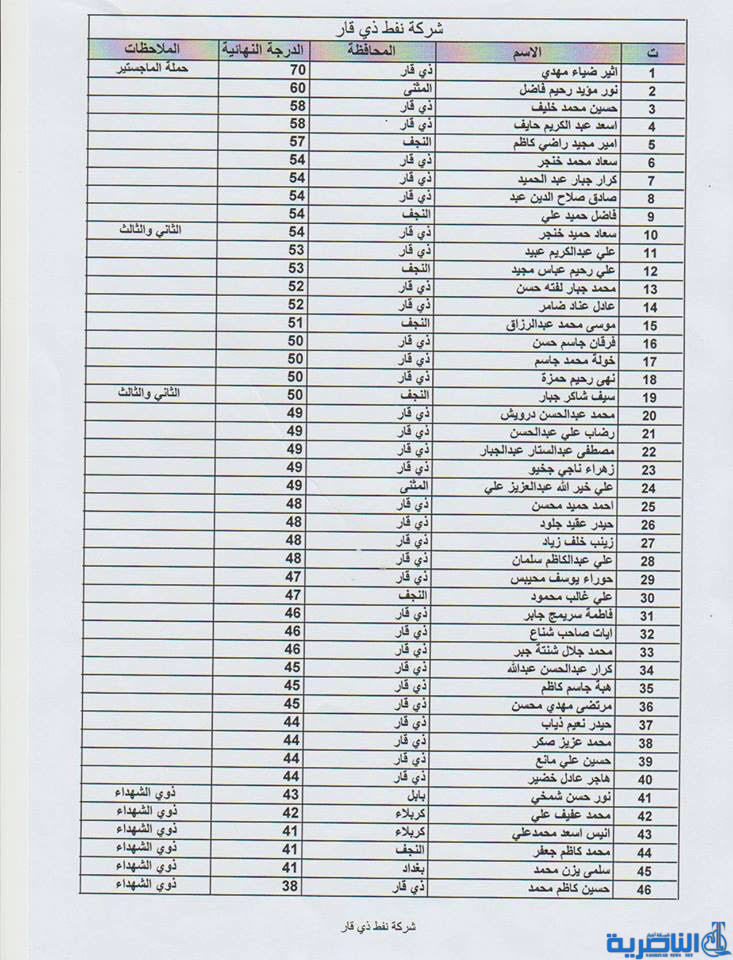 شركة نفط ذي قار
ت الاسم المحافظة الدرجة النهائية الملاحظات
1 اثير ضياء مهدي ذي قار 70 حملة الماجستير
2 نور مؤيد رحيم فاضل المثنى 60
3 حسين محمد خليف ذي قار 58
4 اسعد عبد الكريم حايف ذي قار 58
5 امير مجيد راضي كاظم النجف 57
6 سعاد محمد خنجر ذي قار 54
7 كرار جبار عبد الحميد ذي قار 54
8 صادق صلاح الدين عبد ذي قار 54
9 فاضل حميد علي النجف 54
10 سعاد حميد خنجر ذي قار 54 الثاني والثالث
11 علي عبدالكريم عبيد ذي قار 53
12 علي رحيم عباس مجيد النجف 53
13 محمد جبار لفته حسن ذي قار 52
14 عادل عناد ضامر ذي قار 52
15 موسى محمد عبدالرزاق النجف 51
16 فرقان جاسم حسن ذي قار 50
17 خولة محمد جاسم ذي قار 50
18 نهى رحيم حمزة ذي قار 50
19 سيف شاكر جبار النجف 50 الثاني والثالث
20 محمد عبدالحسن درويش ذي قار 49
21 رضاب علي عبدالحسن ذي قار 49
22 مصطفى عبدالستار عبدالجبار ذي قار 49
23 زهراء ناجي جخيو ذي قار 49
24 علي خير الله عبدالعزيز علي المثنى 49
25 احمد حميد محسن ذي قار 48
26 حيدر عقيد جلود ذي قار 48
27 زينب خلف زياد ذي قار 48
28 علي عبدالكاظم سلمان ذي قار 48
29 حوراء يوسف محيبس ذي قار 47
30 علي غالب محمود النجف 47
31 فاطمة سريمج جابر ذي قار 46
32 ايات صاحب شناع ذي قار 46
33 محمد جلال شنتة جبر ذي قار 46
34 كرار عبدالحسن عبدالله ذي قار 45
35 هبة جاسم كاظم ذي قار 45
36 مرتضى مهدي محسن ذي قار 45
37 حيدر نعيم ذياب ذي قار 44
38 محمد عزيز صكر ذي قار 44
39 حسين علي مانع ذي قار 44
40 هاجر عادل خضير ذي قار 44
41 نور حسن شمخي بابل 43 ذوي الشهداء
42 محمد عفيف علي كربلاء 42 ذوي الشهداء
43 انيس اسعد محمدعلي كربلاء 41 ذوي الشهداء
44 محمد كاظم جعفر النجف 41 ذوي الشهداء
45 سلمى يزن محمد بغداد 41 ذوي الشهداء
46 حسين كاظم محمد ذي قار 38 ذوي الشهداء
شركة نفط ذي قار
شبكة أخبار
الناصرية